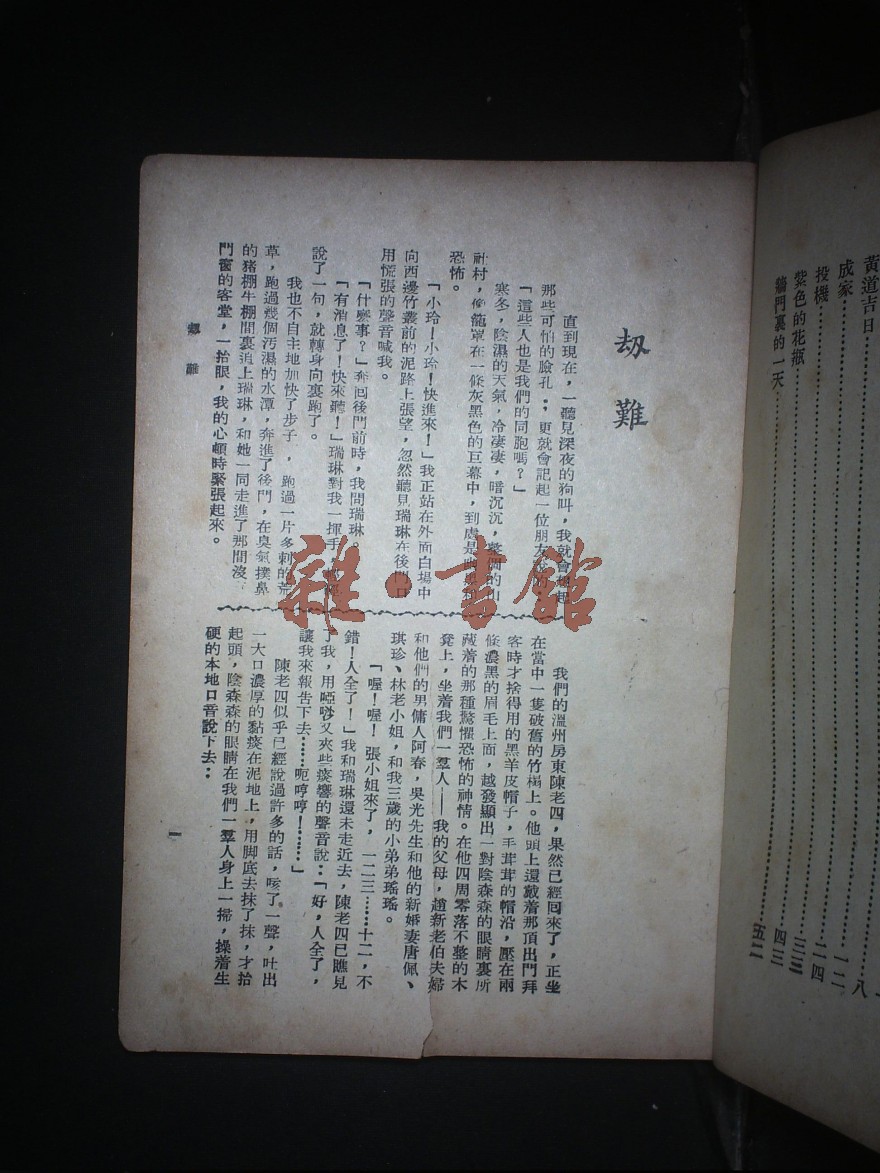 黃道吉日
八
成家
一二
投機
二四
紫色的花瓶
三三
牆門裏的一天
四三
五二
劫難
直到現在，一聽見深夜的狗叫，我就會想起
那些可怕的臉孔；更就會記起一位朋友說的
「這些人也是我們的同胞嗎？」
寒冬，陰濕的天氣，冷凄凄，暗沉沉，整個的山
村，像籠罩在一條灰黑色的巨幕中，到處是
恐怖。
「小玲！小玲！快進來！」我正站在外面白場中
向西邊竹叢前的泥路上張望，忽然聽見瑞琳在後門口
用慌張的聲音喊我。
「什麼事？」奔回後門前時，我問瑞琳。
「有消息了！快來聽！」瑞琳對我一揮手，
說了一句，就轉身向裏跑了。
我也不自主地加快了步子，跑過一片多刺的荒
草，跑過幾個汚濕的水潭，奔進了後門，在臭氣撲鼻
的猪棚牛棚間裏追上瑞琳，和她一同走進了那間沒
門窗的客堂，一抬眼，我的心頓時緊張起來。
我們的溫州房東陳老四，果然已經回來了，正坐
在當中一隻破舊的竹榻上。他頭上還戴着那頂出門拜
客時才捨得用的黑羊皮帽子，毛茸茸的帽沿，壓在兩
條濃黑的眉毛上面，越發顯出一對陰森森的眼睛裏所
藏着的那種驚懼恐怖的神情。在他四周零落不整的木
凳上，坐着我們一羣人——我的父母，趙新老伯夫婦
和他們的男傭人阿春，吳光先生和他的新婚妻唐佩、
琪珍、林老小姐，和我三歲的小弟弟瑤瑤。
「喔！喔！張小姐來了，一二三……十二，不
錯！人全了！」我和瑞琳還未走近去，陳老四已瞧見
了我，用啞嘐又夾些痰響的聲音說：「好，人全了，
讓我來報告下去……呃哼哼！……」
陳老四似乎已經說過許多的話，咳了一聲，吐出
一大口濃厚的黏痰在泥地上，用脚底去抹了抹，才抬
起頭，陰森森的眼睛在我們一羣人身上一掃，操着生
硬的本地口音說下去：
劫難
一
雜·書館